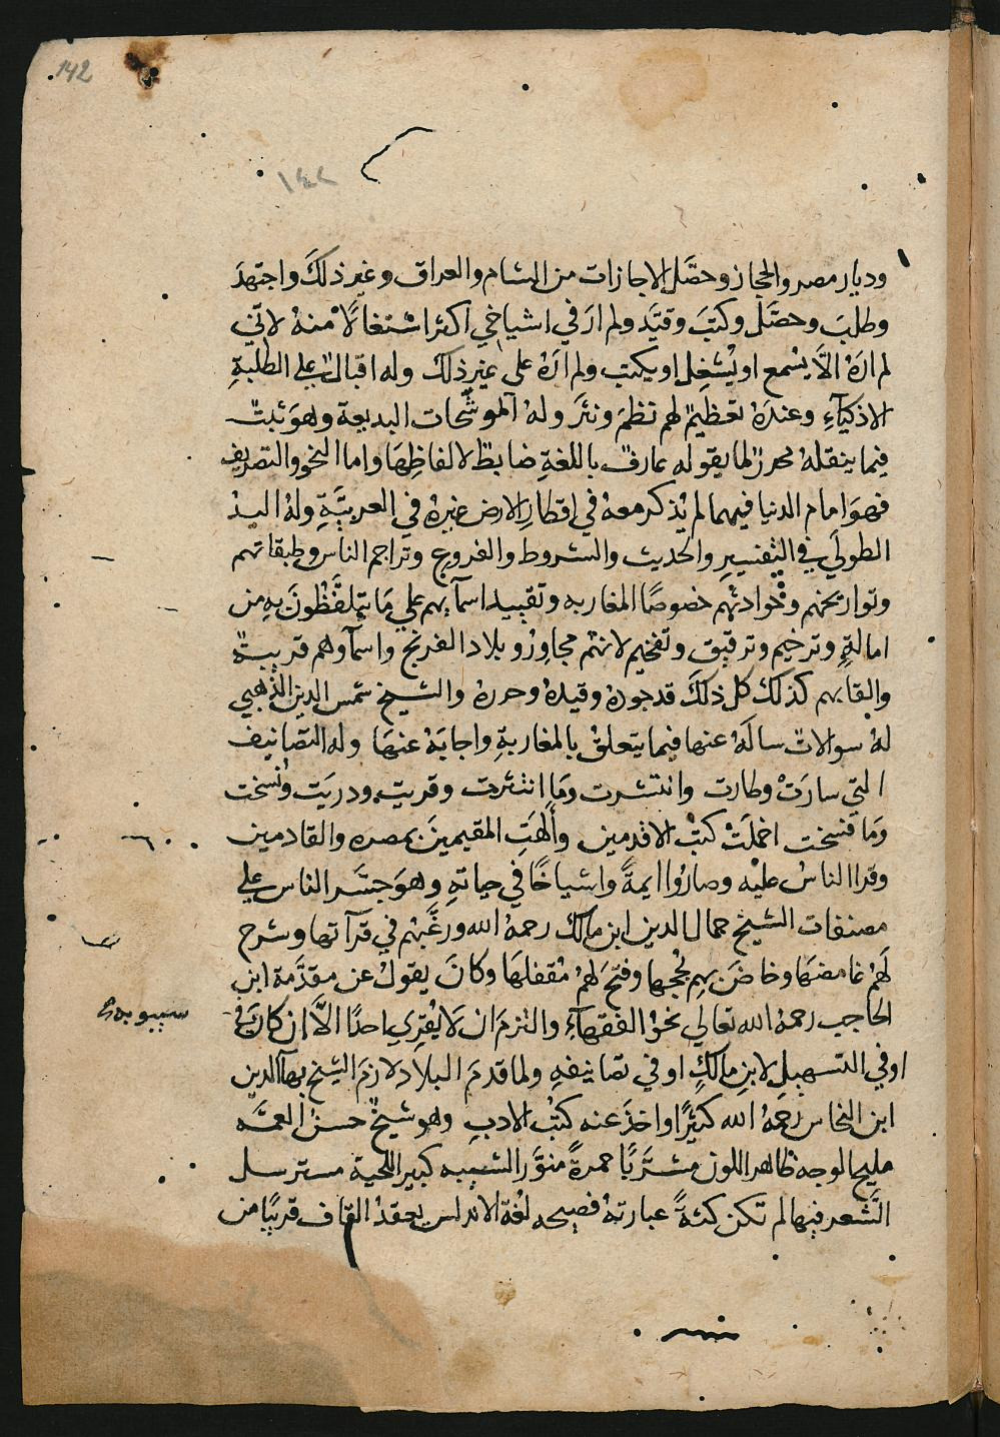 142
١٤٢
وديار مصر والحجاز وحصَّل الاجازات من الشام والعراق وغير ذلكَ واجتهدَ
وطلبَ وحصَّل وكتبَ وقيَّد ولم ارَ في اشياخي اكثر اشتغالًا منهُ لانّي
لم ارَهُ الَّا يسمع او يُشغِل او يكتب ولم ارَهُ على غير ذلك وله اقبالٌ على الطلبةِ
الاذكيآءِ وعندَهُ تعظيمٌ لهم نظمَ ونثرَ ولهُ الموشّحات البديعة وهوَ ثبتٌ
فيما ينقلهُ محررٌ لما يقوله عارفٌ باللغةِ ضابطٌ لالفاظِهَا واما النحو والتصريف
فهوَ امام الدنيا فيهما لم يُذكر معهُ في اقطارِ الارض غيرهُ في العربيَّةِ ولهُ اليدُ
الطولَي في التفسيرِ والحديث والشروط والفروعِ وتراجم الناس وطبقاتهم
وتواريخهم وحوادثهم خصوصًا المغاربه وتقييد اسمآيهم علي مَا يتلفَّظُونَ بهِ من
امالةٍ وترخيم وترقيق وتفخيم لانهم مجاوِرُو بلاد الفرنج واسمآوهم قريبةٌ
والقابهم كذلك كل ذلكَ قد جودهُ وقيدهُ وحررهُ والشيخ شمس الدين الذهبي
لهُ سوالاتٌ سالَهُ عنها فيما يتعلقُ بالمغاربةِ واجابَهُ عنهَا وله التصانيف
التي سارَتْ وطارت وانتشرت ومَا انتثرت وقريت ودريَت ونُسخت
ومَا فُسخت اخملَتْ كتبْ الاقدمين وألهَتِ المقيمينَ بمصره والقادمين
وقرا الناسُ عليْه وصارُوا ايمةً واشياخًا في حياتهِ وهوَ جسَّر الناس علي
مصنفات الشيخ جمال الدين ابن مالك رحمهُ الله ورغَّبهم في قرآتها وشرح
لَهُمْ غامضهَا وخاضَ بهِم لُججها وفتحَ لهُمْ مُقفلهَا وكانَ يقولُ عن مقدَّمة ابن
الحاجب رحمهُ الله تعالي نحوُ الفقهآءِ والتزمَ ان لَا يُقرِي احدًا الَّا ان كانَ في
سيبويه
او في التسهيلِ لابنِ مالكٍ او في تصانيفهِ ولما قدمَ البلاد لازمَ الشيخ بهآ الدين
ابن النحاس رَحِمَهُ الله كثيرًا واخذَ عنه كتبْ الادبِ وهو شيخٌ حسنُ العمَّه
مليح الوجه ظاهر اللون مشرَّبًا حمرةً منوَّر الشيبه كبير اللحية مسترسل
الشَّعر فيها لم تكن كثةً عبارتهُ فصيحه لُغة الاندلس يعقدُ القاف قريبًا من